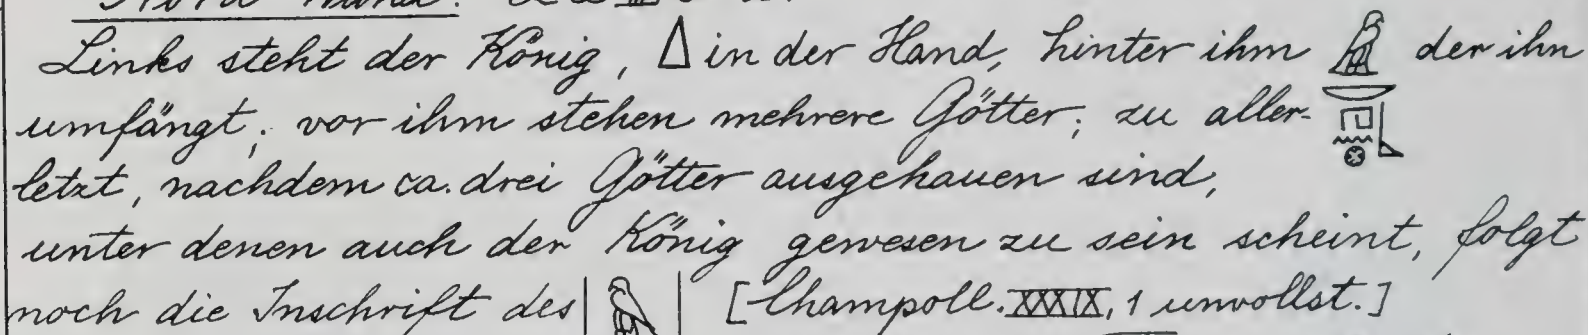 Links steht der König, Δ in der Hand, hinter ihm der ihn
umfängt; vor ihm stehen mehrere Götter; zu aller-
letzt, nachdem ca. drei Götter ausgehauen sind,
unter denen auch der König gewesen zu sein scheint, folgt
noch die Inschrift des [Champoll. XXXIX, 1 unvollst.]